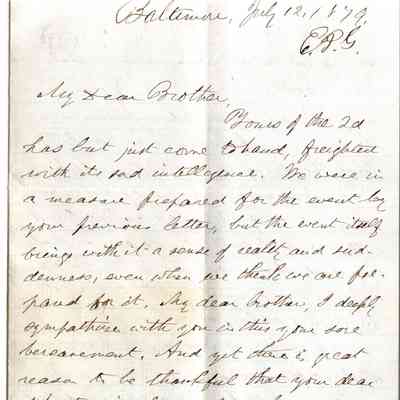 Baltimore, July 12, 1879.
E.P.G.
My Dear Brother,
Yours of the 2d
has but just come to hand, freighted
with its sad intelligence. We were in
a measure prepared for the event by
your previous letter, but the event itself
brings with it a sense of reality and sud-
denness, even when we think we are pre-
pared for it. My dear brother, I deeply
sympathise with you in this your sore
bereavement. And yet there is great
reason to be thankful that your dear